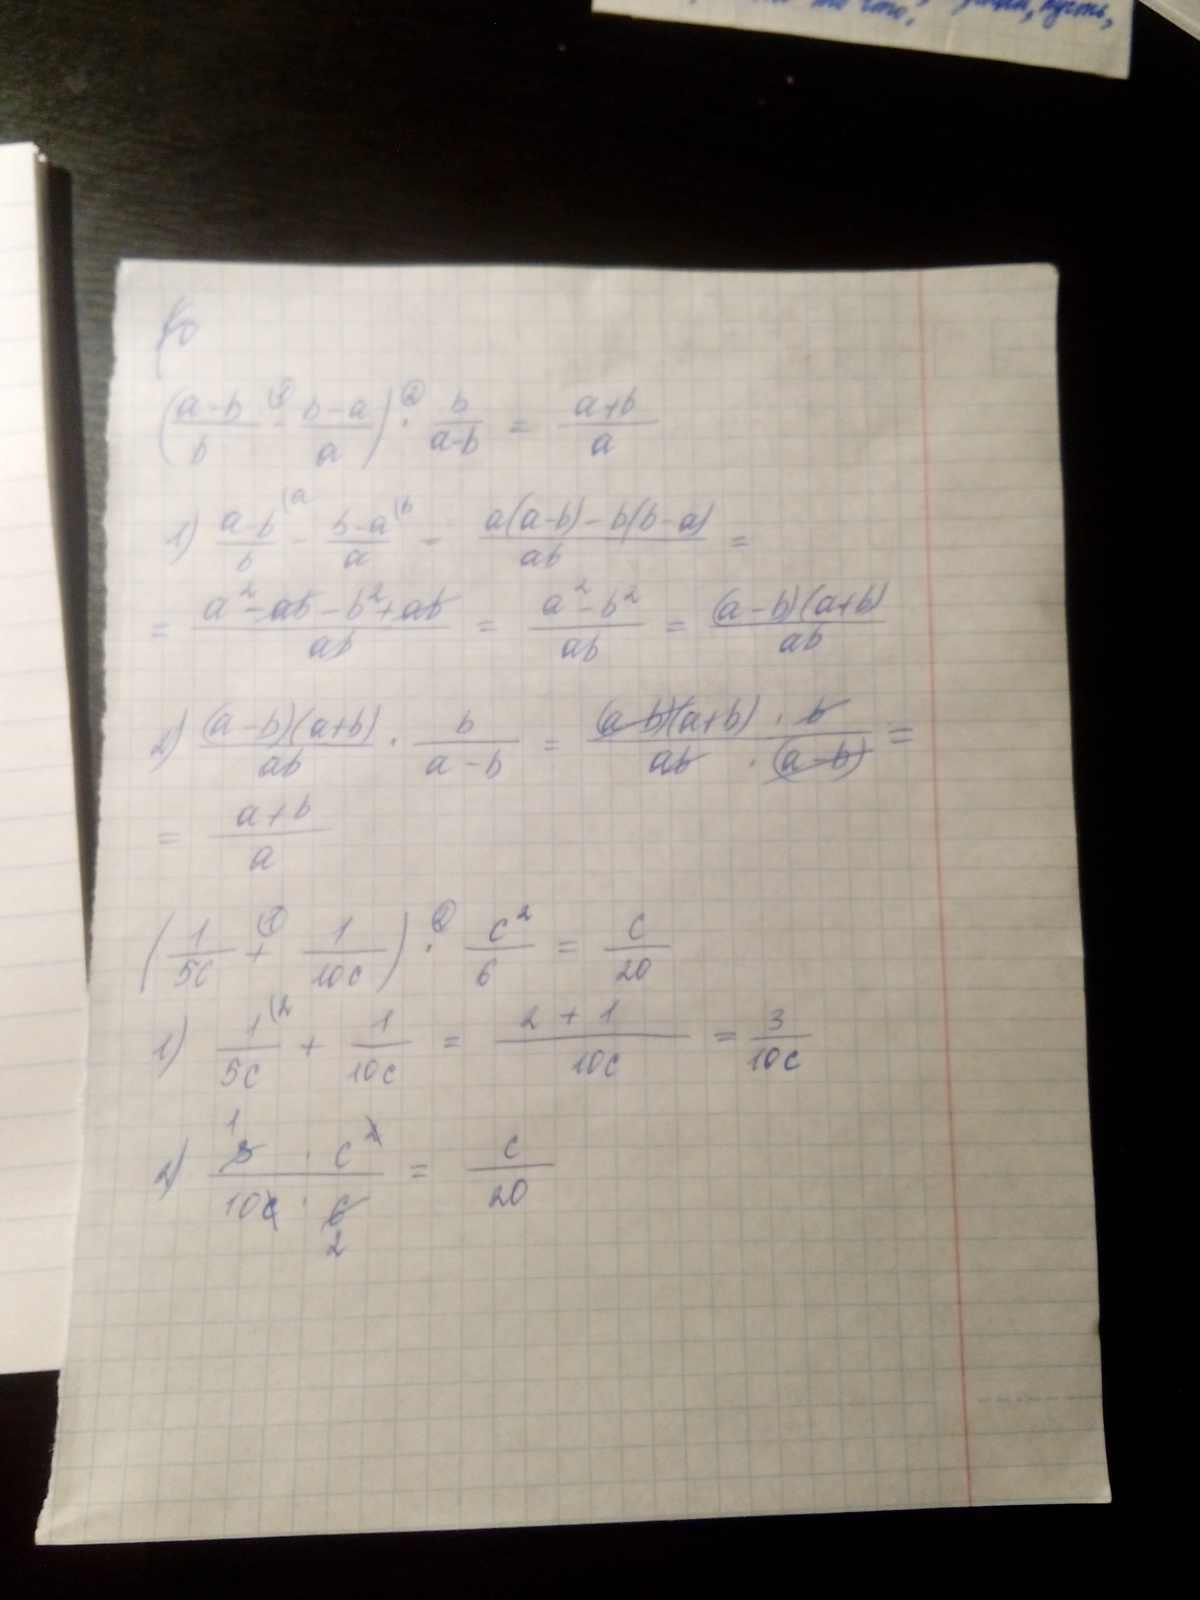 то что,
пусть,
(a-b/b -① b-a/a) ·② b/a-b = a+b/a
1) a-b/b (a - b-a/a (b = a(a-b)-b(b-a)/ab =
= a²-ab-b²+ab/ab = a²-b²/ab = (a-b)(a+b)/ab
2) (a-b)(a+b)/ab · b/a-b = (a-b)(a+b) · b/ab · (a-b) =
= a+b/a
(1/5c +① 1/10c) ·② c²/6 = c/20
1) 1/5c (2 + 1/10c = 2+1/10c = 3/10c
2) 3 1 · c²/10c · 6 2 = c/20